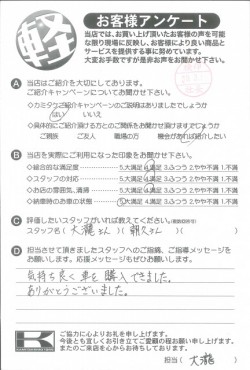 軽
お客様アンケート
当店では、お買い上げ頂いたお客様の声を可能
な限り現場に反映し、お客様により良い商品と
サービスを提供する事に努めています。
大変お手数ですが是非お声をお聞かせ下さい。
A 当店はご紹介を大切にしております。
ご紹介キャンペーンについてお聞かせ下さい。
◇カミタケご紹介キャンペーンのご説明はありましたでしょうか
はい いいえ
◇具体的にご紹介頂ける方とのご関係をお聞かせ頂けますでしょうか
ご親族 ご友人 職場の方 機会があれば紹介したい
B 当店を実際にご利用になった印象をお聞かせ下さい。
◇総合的な満足度 5.大満足 4.満足 3.ふつう 2.やや不満 1.不満
◇スタッフの対応 5.大満足 4.満足 3.ふつう 2.やや不満 1.不満
◇お店の雰囲気、清掃 5.大満足 4.満足 3.ふつう 2.やや不満 1.不満
◇納車時のお車の状態 5.大満足 4.満足 3.ふつう 2.やや不満 1.不満
C 評価したいスタッフがいれば教えてください。(複数回答可)
スタッフ名( 大瀧さん )( 朝久さん )
D 担当させて頂きましたスタッフへのご指摘、ご指導メッセージを
お願いします。応援メッセージもぜひお願いします。
気持ち良く車を購入できました。
ありがとうございました。
K
ご協力に心よりお礼を申し上げます。
今後とも宜しくお引き立てご愛顧の程お願い申し上げます。
またのご来店を心からお待ちしております。
担当( 大瀧 )